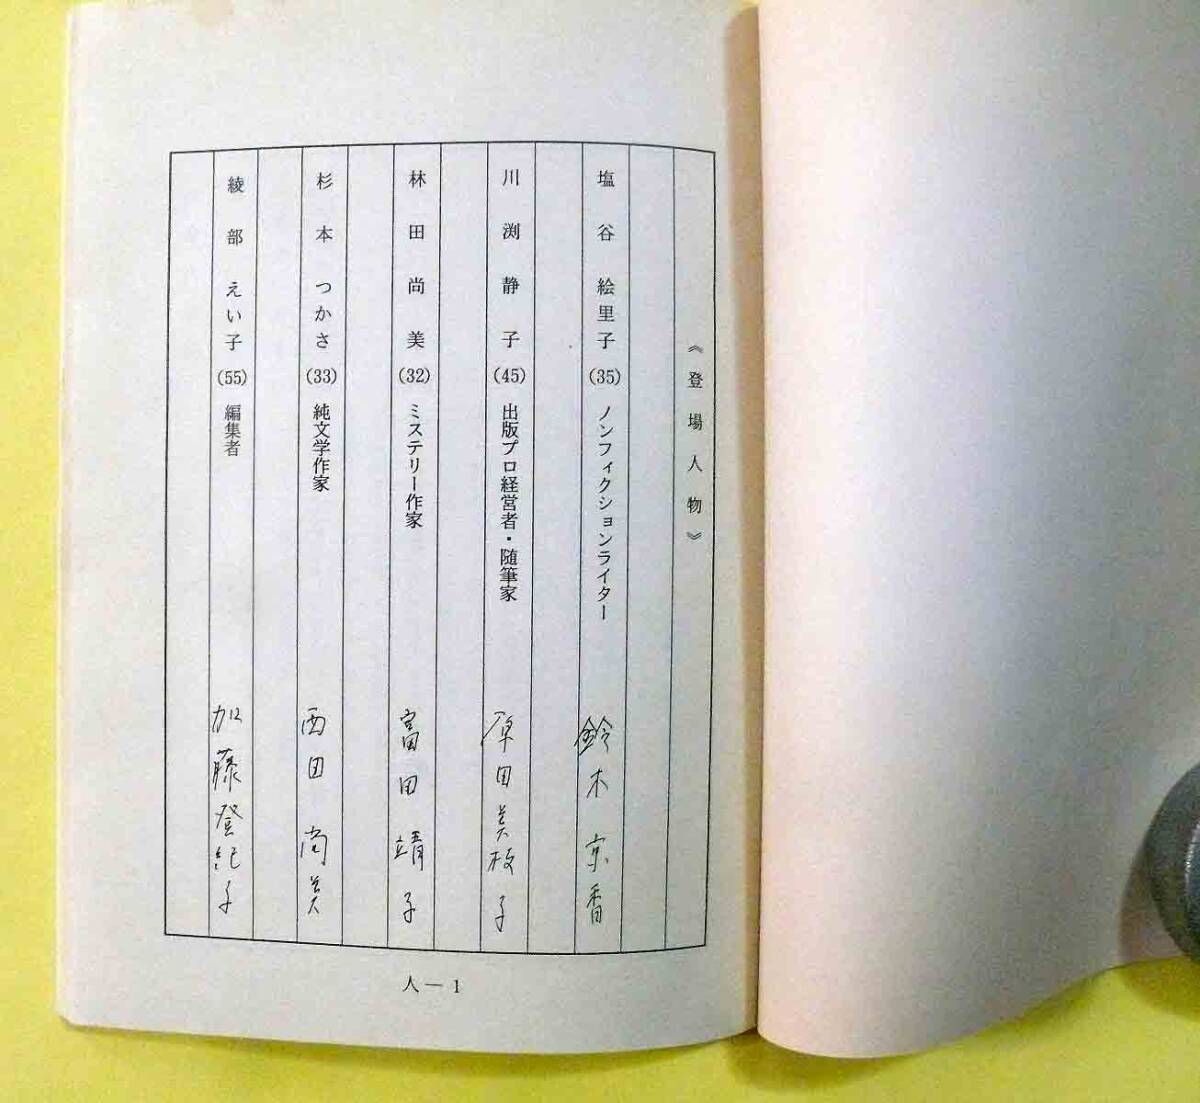 《登場人物》
塩谷絵里子(35)ノンフィクションライター 鈴木京香
川渕静子(45)出版プロ経営者・随筆家 原田美枝子
林田尚美(32)ミステリー作家 富田靖子
杉本つかさ(33)純文学作家 西田尚美
綾部えい子(55)編集者 加藤登紀子
人―1